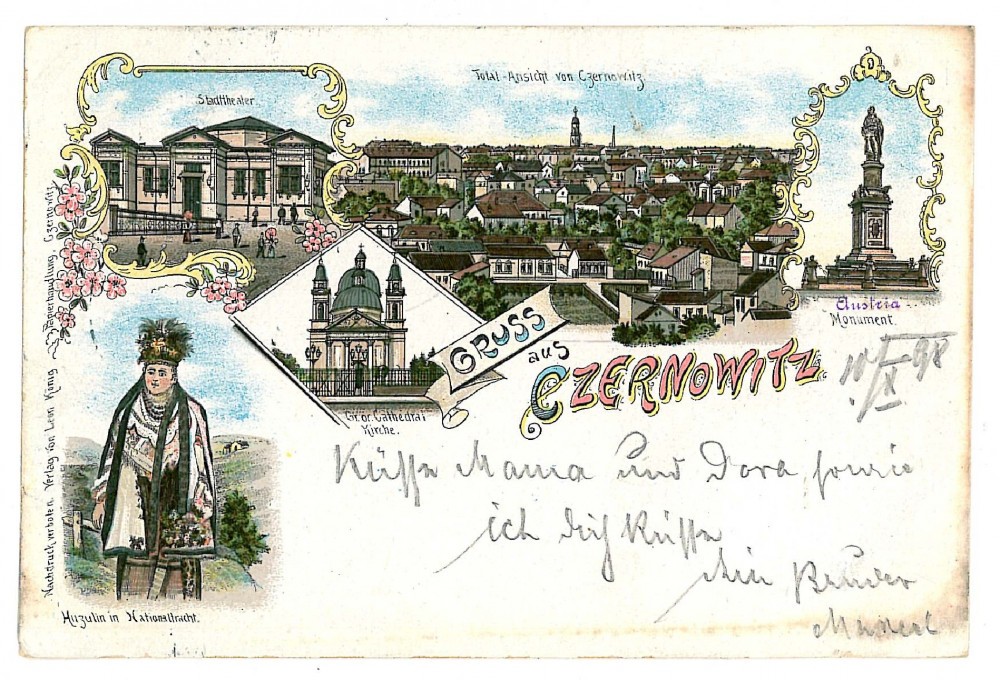 Stadttheater.
Total-Ansicht von Czernowitz.
Austria
Monument.
Gr. or. Cathedral
Kirche.
GRUSS
aus
CZERNOWITZ.
10/X 98
Huzulin in Nationaltracht.
Nachdruck verboten. Verlag von Leon König, Papierhandlung, Czernowitz.
Küsse Mama und Dora, sowie
ich dich Küsse
dein Bruder